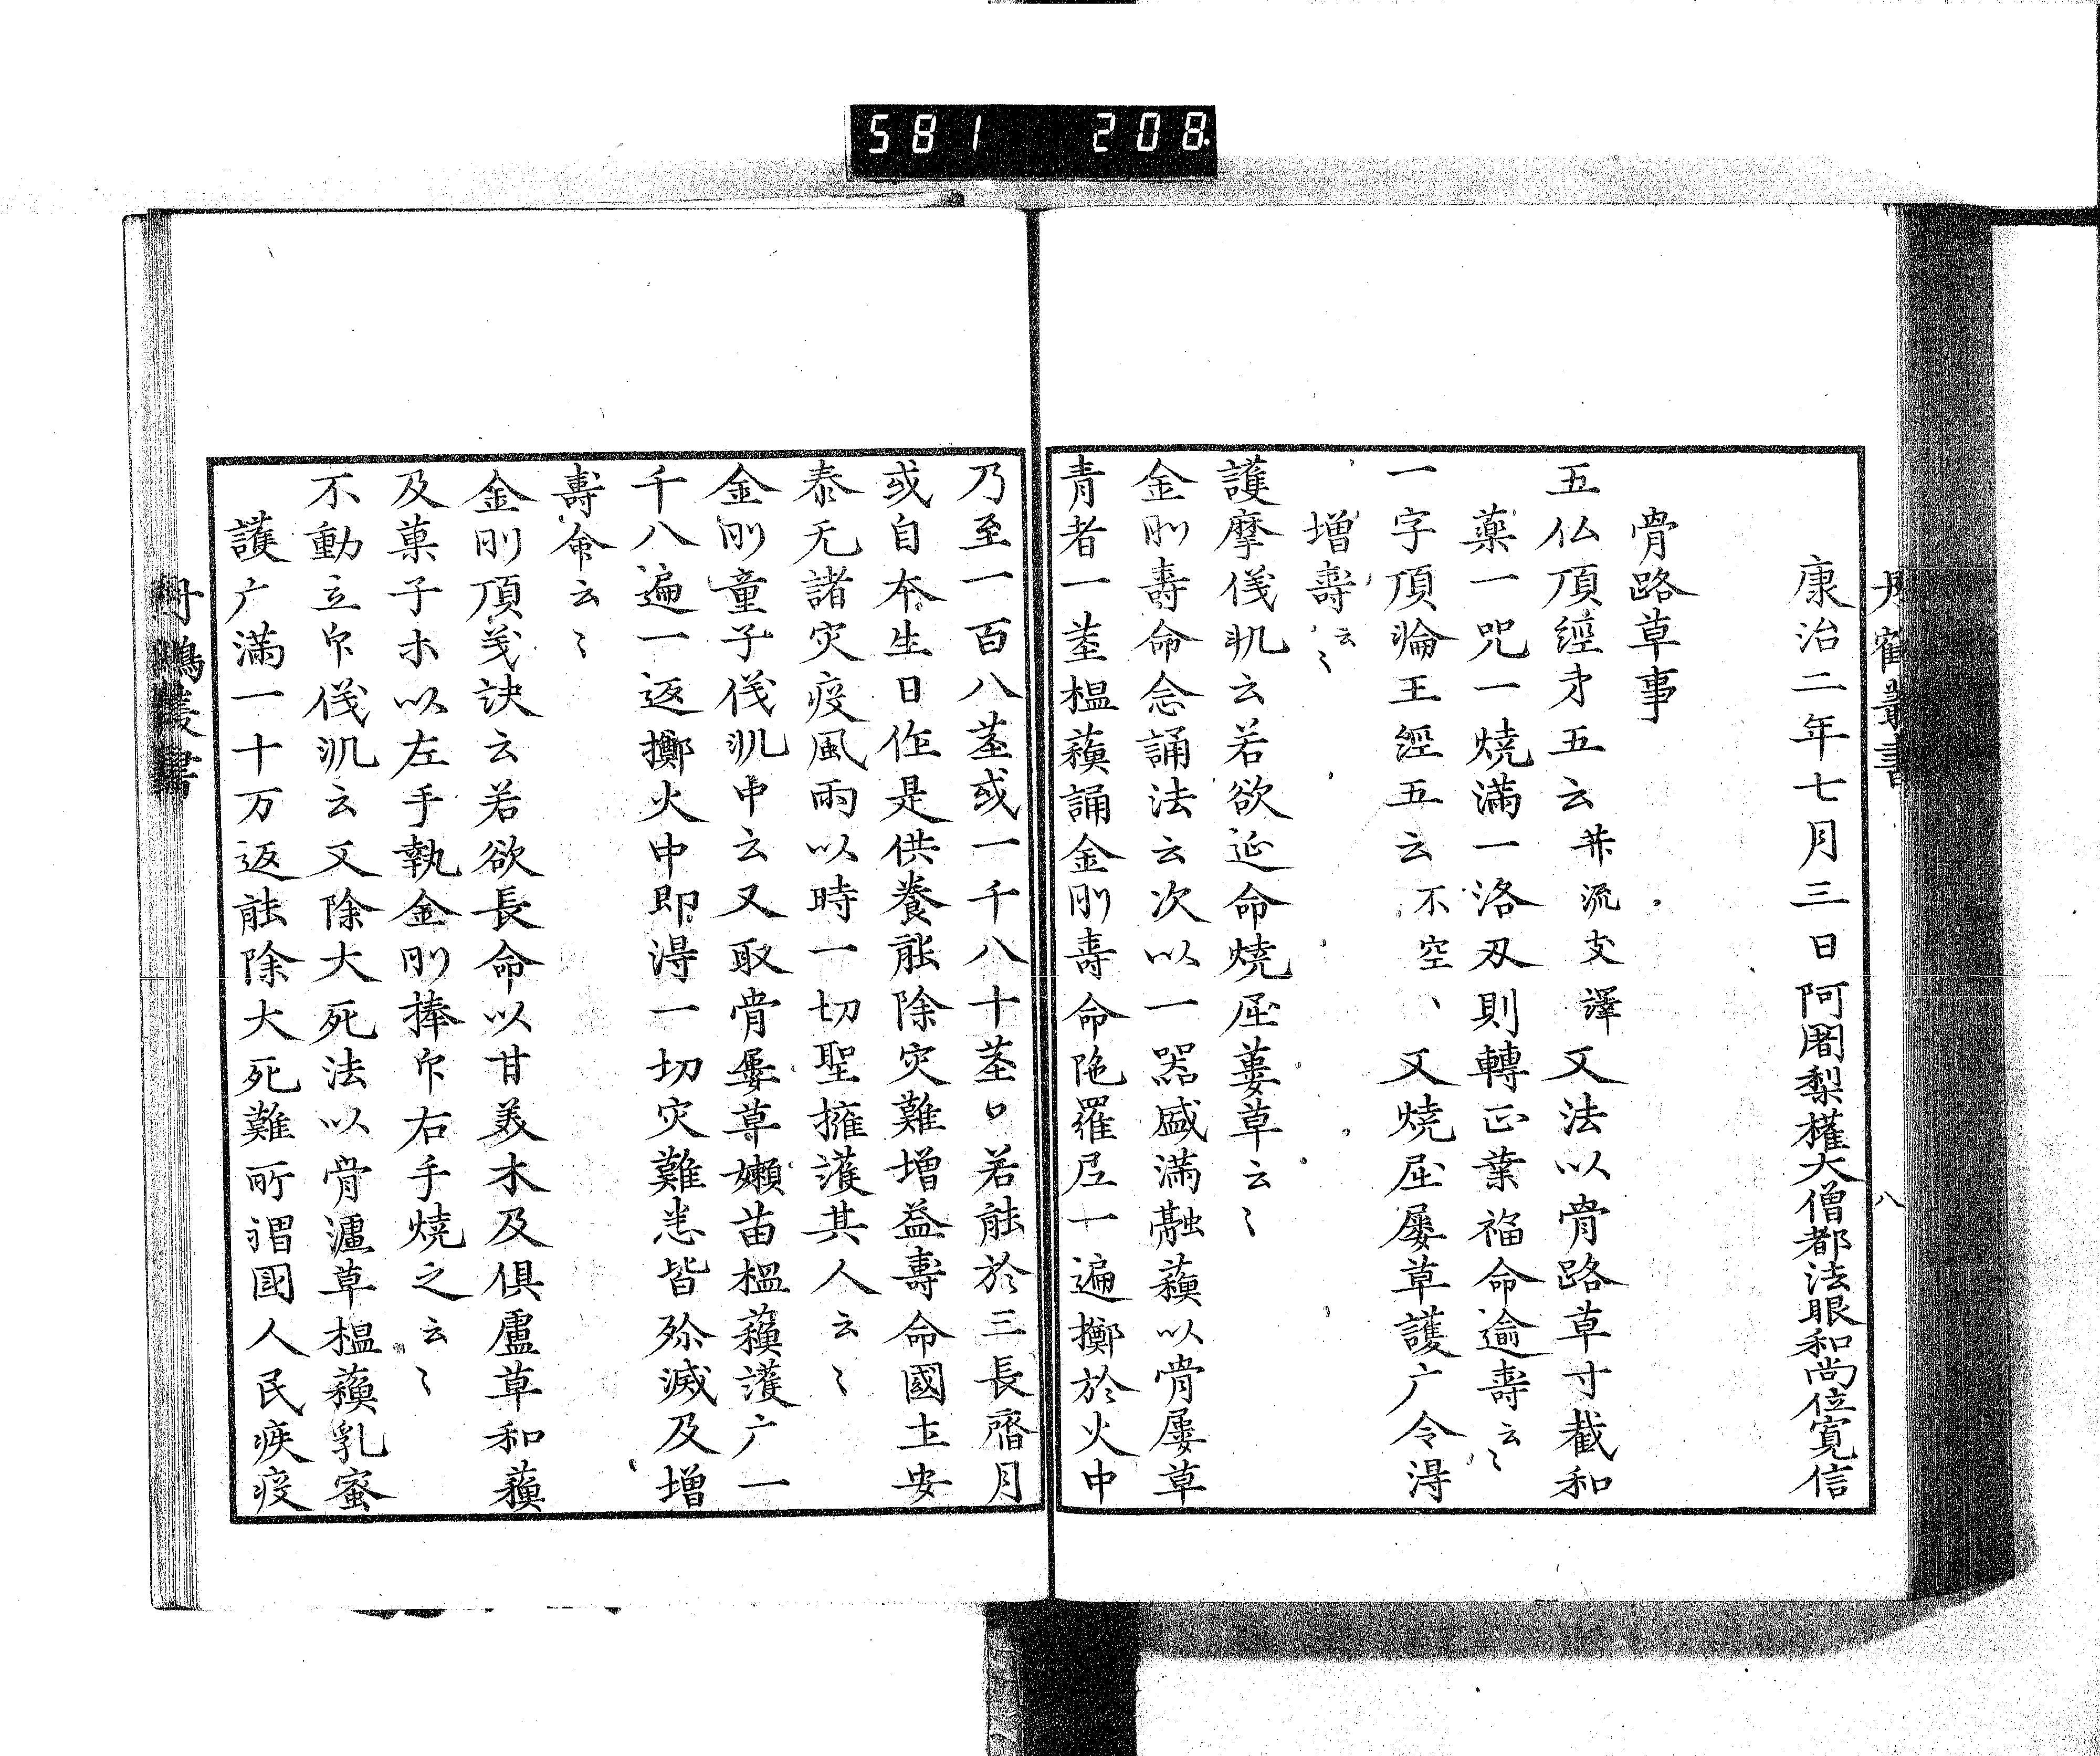 581 208
丹鶴叢書 八
康治二年七月三日阿闍梨権大僧都法眼和尚位寛信
骨路草事
五仏頂經才五云 䒑流支譯 又法以骨路草寸截和
藥一咒一燒滿一洛叉則轉正業福命逾壽云〻
一字頂輪王經五云 不空〻 又燒屈屢草護广令淂
增壽云〻
護摩儀䡄云若欲延命燒屈蔞草云〻
金剛壽命念誦法云次以一器盛滿融蘓以骨屢草
青者一莖榲蘓誦金剛壽命陁羅尼一遍擲於火中
乃至一百八莖或一千八十莖口若能於三長齋月
或自本生日作是供養能除灾難增益壽命國土安
泰无諸灾疫風雨以時一切聖擁護其人云〻
金剛童子儀䡄中云又取骨屢草嫩苗榲蘓護广一
千八遍一返擲火中即淂一切灾難悉皆殄滅及增
壽命云〻
金剛頂義訣云若欲長命以甘美木及俱盧草和蘓
及菓子木以左手執金剛捧印右手燒之云〻
不動立印儀䡄云又除大死法以骨瀘草榲蘓乳蜜
護广滿一十万返能除大死難所謂國人民疾疫
丹鶴叢書